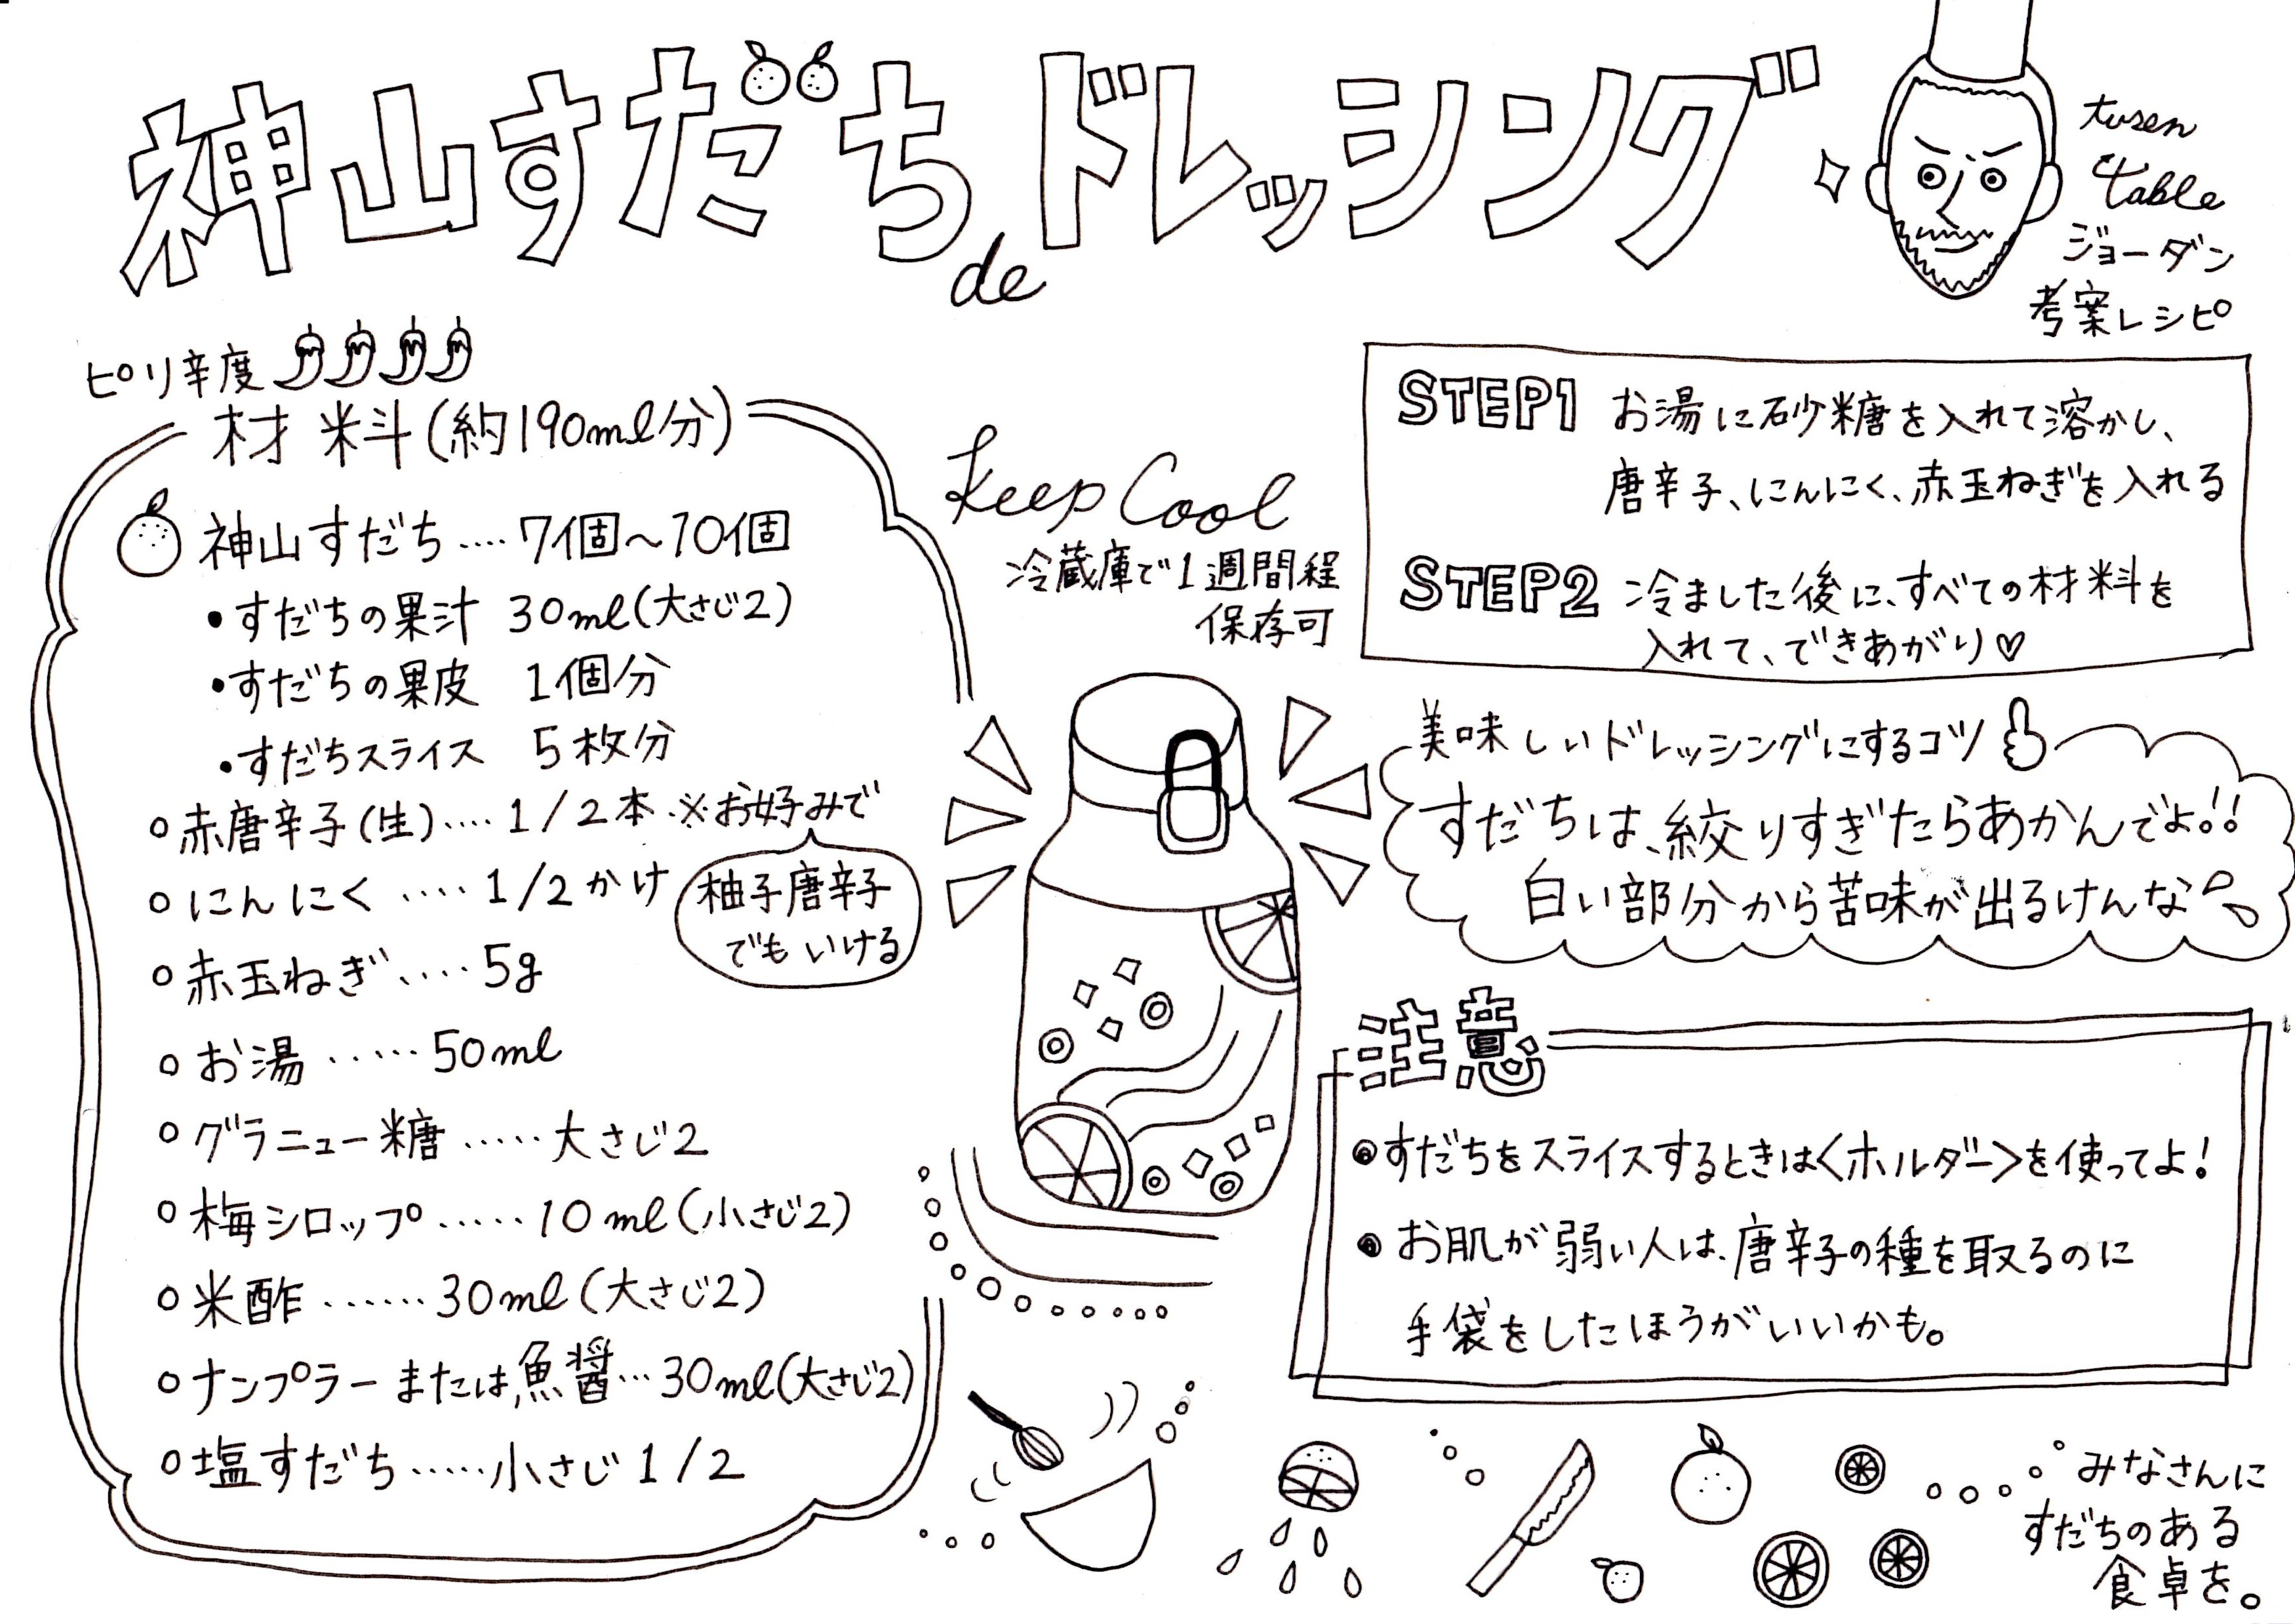 神山すだち de ドレッシング
tusen
table
ジョーダン
考案レシピ
ピリ辛度
材料(約190ml分)
神山すだち....7個〜10個
・すだちの果汁 30ml(大さじ2)
・すだちの果皮 1個分
・すだちスライス 5枚分
○赤唐辛子(生)....1/2本 ※お好みで
柚子唐辛子
でもいける
○にんにく....1/2かけ
○赤玉ねぎ....5g
○お湯.....50ml
○グラニュー糖.....大さじ2
○梅シロップ.....10ml(小さじ2)
○米酢......30ml(大さじ2)
○ナンプラーまたは、魚醤...30ml(大さじ2)
○塩すだち.....小さじ1/2
Keep Cool
冷蔵庫で1週間程
保存可
STEP1 お湯に砂糖を入れて溶かし、
唐辛子、にんにく、赤玉ねぎを入れる
STEP2 冷ました後に、すべての材料を
入れて、できあがり♡
美味しいドレッシングにするコツ
すだちは、絞りすぎたらあかんでよ!!
白い部分から苦味が出るけんな
注意
◉すだちをスライスするときは<ホルダー>を使ってよ!
◉お肌が弱い人は、唐辛子の種を取るのに
手袋をしたほうがいいかも。
みなさんに
すだちのある
食卓を。